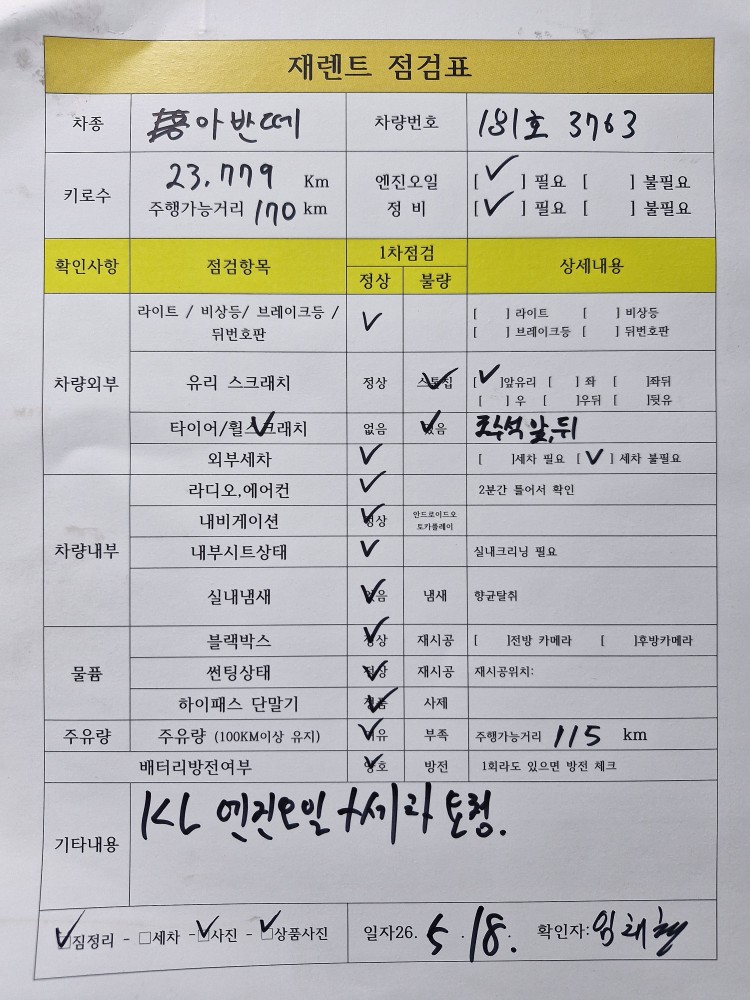 재렌트 점검표
차종 아반떼 차량번호 181호 3763
키로수 23,779 Km 엔진오일 [✓] 필요 [ ] 불필요
주행가능거리 170 km 정 비 [✓] 필요 [ ] 불필요
확인사항 점검항목 1차점검 상세내용
정상 불량
차량외부 라이트 / 비상등/ 브레이크등 / 뒤번호판 ✓ [ ] 라이트 [ ] 비상등
[ ] 브레이크등 [ ] 뒤번호판
유리 스크래치 정상 스톤칩 ✓ [✓]앞유리 [ ] 좌 [ ]좌뒤
[ ] 우 [ ]우뒤 [ ]뒷유
타이어/휠스크래치 ✓ 없음 있음 ✓ 조수석 앞,뒤
외부세차 ✓ [ ]세차 필요 [✓] 세차 불필요
차량내부 라디오,에어컨 ✓ 2분간 틀어서 확인
내비게이션 정상 ✓ 안드로이드오토카플레이
내부시트상태 ✓ 실내크리닝 필요
실내냄새 없음 ✓ 냄새 향균탈취
물품 블랙박스 정상 ✓ 재시공 [ ]전방 카메라 [ ]후방카메라
썬팅상태 정상 ✓ 재시공 재시공위치:
하이패스 단말기 정품 ✓ 사제
주유량 주유량 (100KM이상 유지) ✓ 부족 주행가능거리 115 km
배터리방전여부 양호 ✓ 방전 1회라도 있으면 방전 체크
기타내용 엔진오일 +세차 요청.
☑짐정리 - □세차 - ☑사진 - ☑상품사진 일자26. 5 . 18. 확인자: